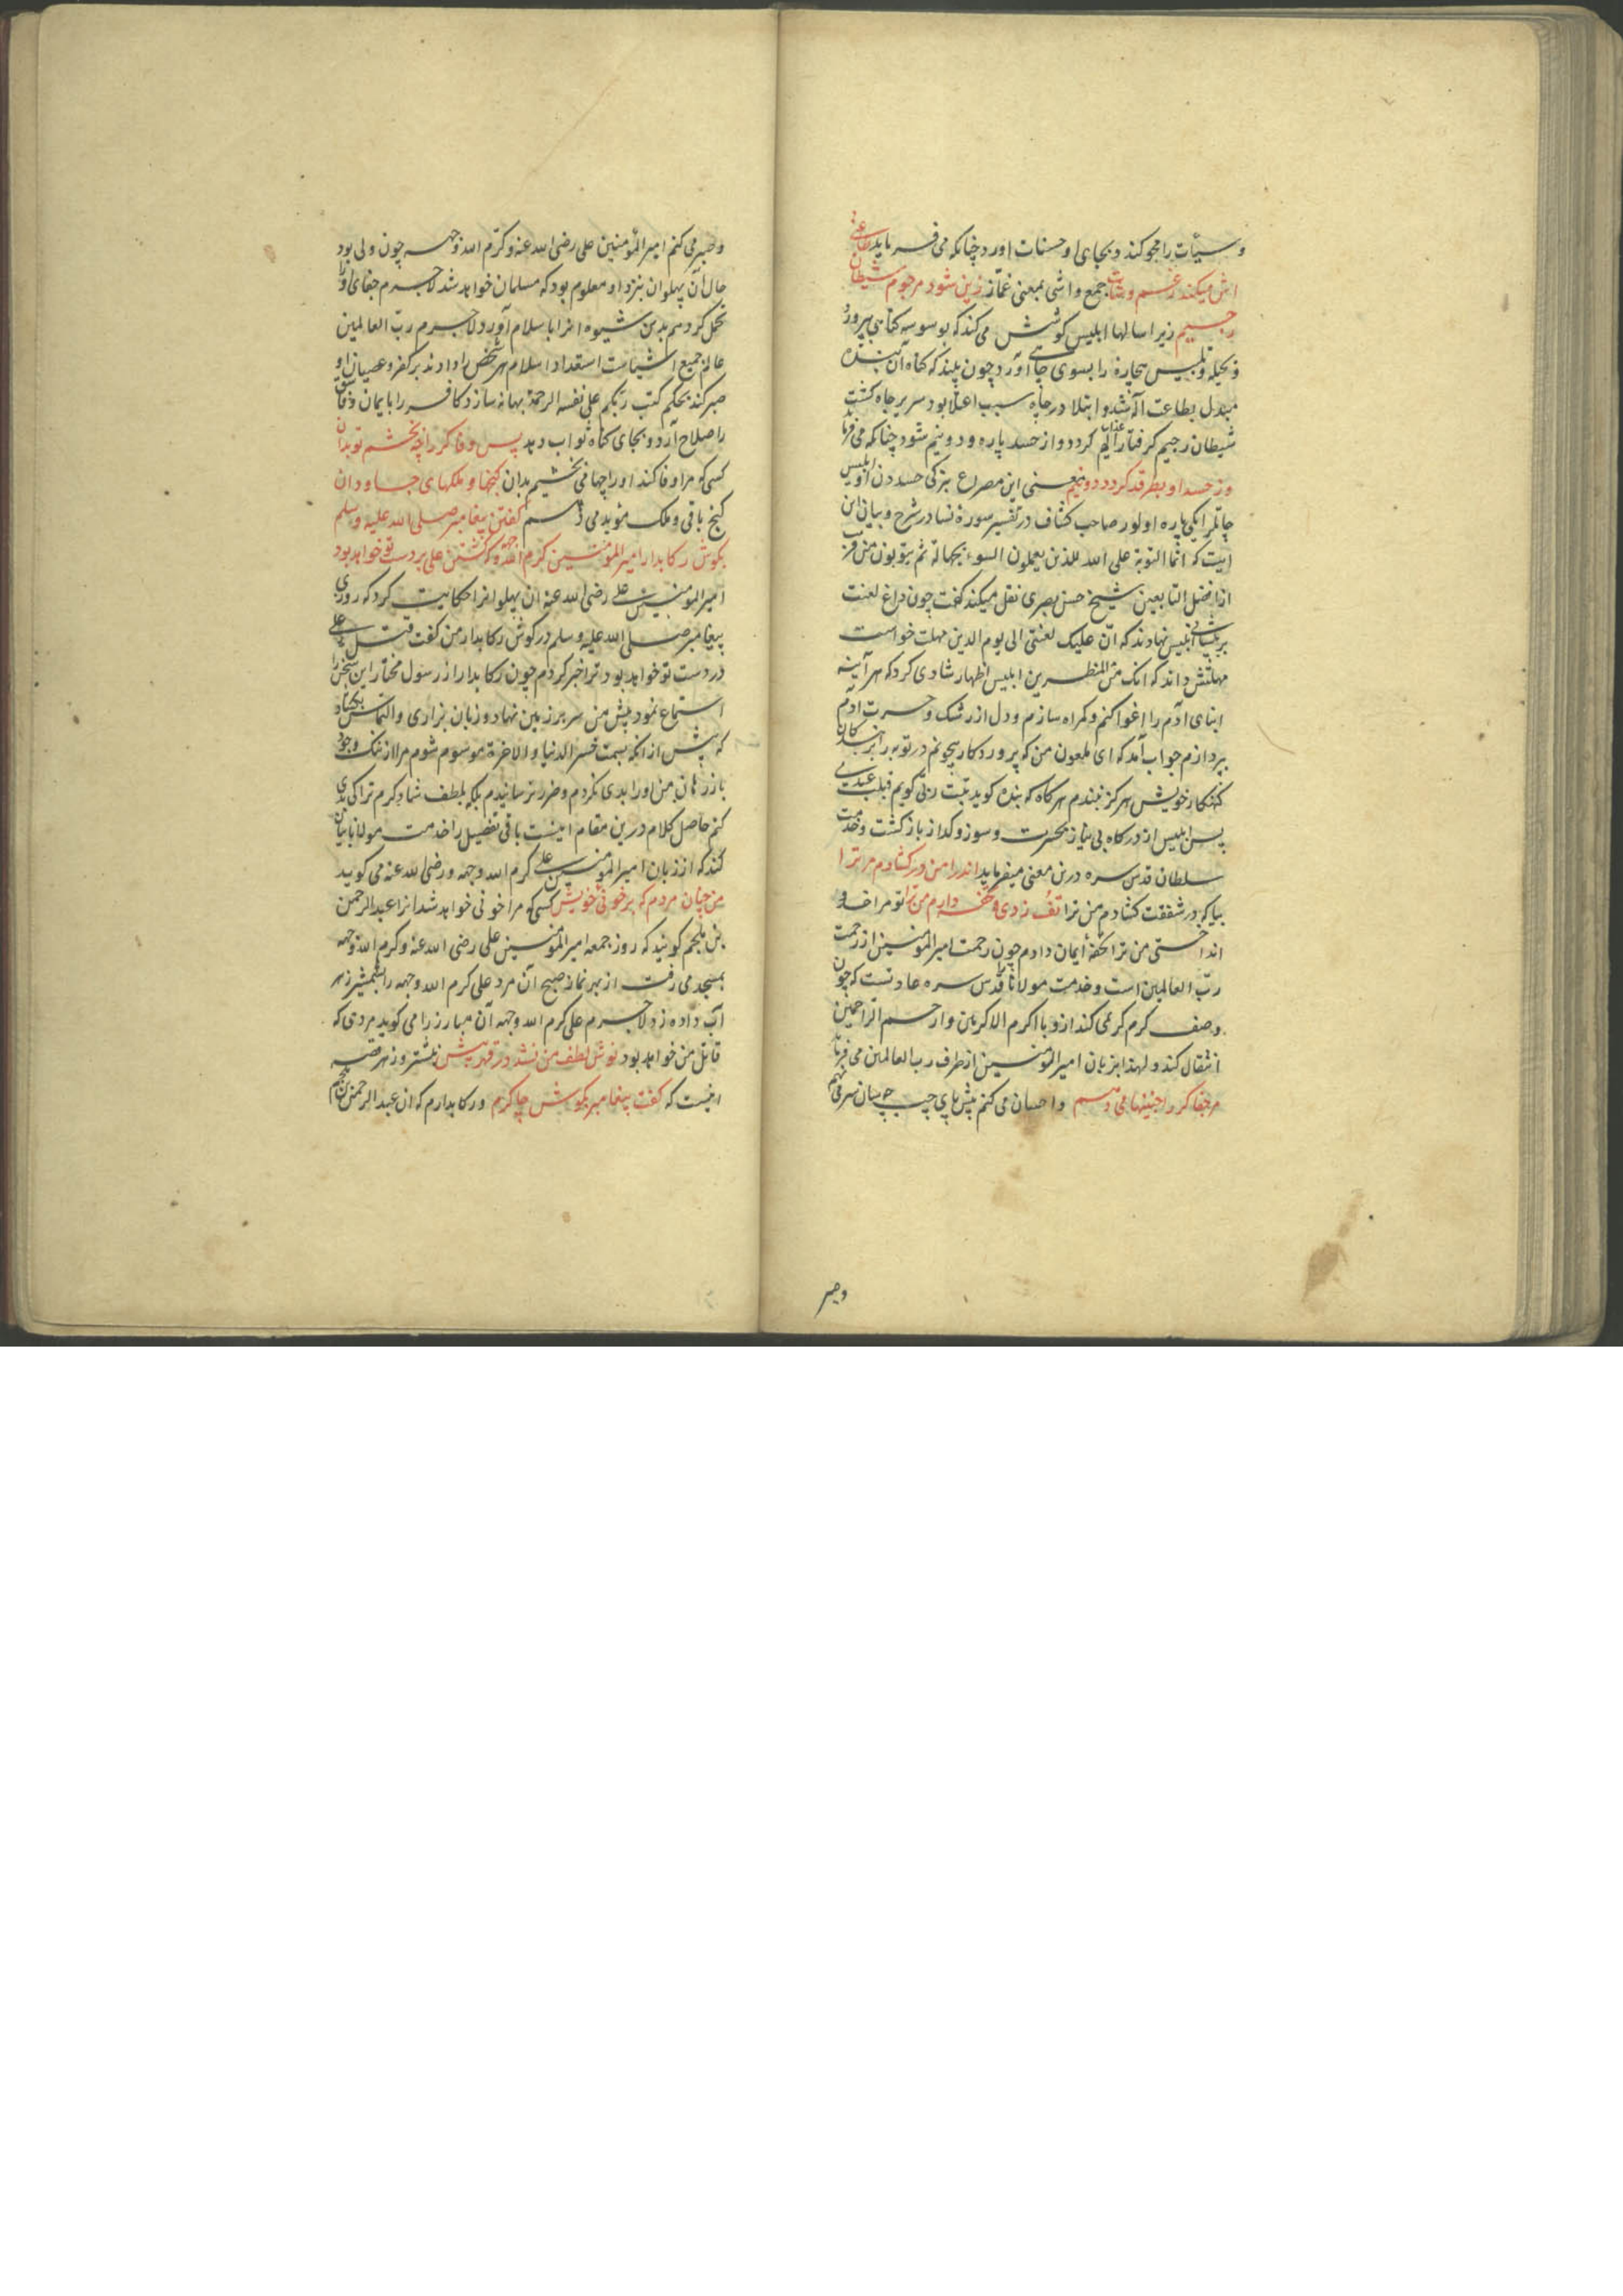 و سیّأت را محو کند و بجای او حسنات اورد چنانکه می فرماید طاعتی
اش میکند رغم وشات جمع واشی بمعنی غمّاز زین شود مرجوم شیطان
رجیم زیرا سالها ابلیس کوشش می کند که بوسوسه کناهی پرورد
و بحیله و تلبیس بیچاره را بسوی چاهی آورد چون بیند که کناه آن بنده
مبدل بطاعت آله شد و ابتلا در چاه سبب اعتلا بود سریر جاه کشت
شیطان رجیم کرفتار عذاب الیم کردد و از حسد پاره و دو نیم شود چنانکه می فرماید
وز حسد او بطرقد کردد دو نیم معنی این مصراع بترکی حسددن اول ابلیس
چاتلر ایکی پاره اولور صاحب کشاف در تفسیر سورۀ نسا در شرح و بیان این
ایت که انّما التوبة علی الله للذین یعملون السوء بجهالة ثم یتوبون من قریب
از افضل التابعین شیخ حسن بصری نقل میکند کفت چون داغ لعنت
بر پیشانی ابلیس نهادند که انّ علیک لعنتی الی یوم الدین مهلت خواست
مهلتش داند که انک من المنظرین ابلیس اظهار شادی کرد که هر آینه
ابنای آدم را اغوا کنم و کمراه سازم و دل از رشک و حسرت آدم
بپردازم جواب آمد که ای ملعون من که پروردکار بیچونم در توبه را بر بندکان
کنهکار خویش هرکز نبندم هرکاه که بنده کوید تبت ربّی کویم قبلت عبدی
پس ابلیس از درکاه بی نیاز بحسرت و سوز و کداز باز کشت و خدمت
سلطان قدس سره درین معنی میفرماید اندرا من در کشادم مر ترا
بیا که در شفقت کشادم من ترا تف زدی و تحفه دادم من ترا تو مراخدو
انداختی من ترا تحفۀ ایمان دادم چون رحمت امیر المؤمنین از رحمت
ربّ العالمین است و خدمت مولانا قدّس سره عادتست که چون
وصف کرم کریمی کند ازو با اکرم الاکرمین و ارحم الراحمین
انتقال کند و لهذا بزبان امیر المؤمنین از طرف رب العالمین می فرماید
مر جفاکر را چنینها می دهم و احسان می کنم پیش پای چپ چسان سر می نهم
وصبر
وصبر می کنم امیر المؤمنین علی رضی الله عنه و کرّم الله وجهه چون ولی بود
حال آن پهلوان بنزد او معلوم بود که مسلمان خواهد شد لاجرم جفای او را
تحمل کرد هم بدین شیوه انرا باسلام آورد لاجرم ربّ العالمین
عالم جمیع اشیاست استعداد اسلام هر شخص را داند بر کفر و عصیان او
صبر کند بحکم کتب ربّکم علی نفسه الرحمة بهانه سازد کافر را بایمان و فاسق
را صلاح آرد و بجای کناه ثواب دهد پس وفاکر را چه بخشم تو بدان
کسی که مرا وفا کند او را چها می بخشیم بدان کنجها و ملکهای جاودان
کنج باقی و ملک مؤبد می دهم کفتن پیغامبر صلی الله علیه و سلم
بکوش رکابدار امیر المؤمنین کرم الله وجهه که کشتن علی بر دست تو خواهد بود
امیر المؤمنین علی رضی الله عنه ان پهلوانرا حکایت کرد که روزی
پیغامبر صلی الله علیه و سلم در کوش رکابدار من کفت قتل علی
در دست تو خواهد بود ترا خبر کردم چون رکابدار از رسول مختار این سخن را
استماع نمود پیش من سر بر زمین نهاد و زبان بزاری و التماس بکشاد
که پیش از انکه بسمت خسر الدنیا و الاخرة موسوم شوم مرا از ننک وجود
باز رهان من او را بدی نکردم و ضرر نرسانیدم بلکه بلطف شاد کرم ترا کی بدی
کنم حاصل کلام درین مقام اینست باقی تفصیل را خدمت مولانا بیان
کند که از زبان امیر المؤمنین علی کرم الله وجهه و رضی الله عنه می کوید
من چنان مردم که بر خونی خویش کسی که مرا خونی خواهد شد انرا عبد الرحمن
بن ملجم کویند که روز جمعه امیر المؤمنین علی رضی الله عنه و کرم الله وجهه
بمسجد می رفت از بهر نماز صبح آن مرد علی کرم الله وجهه را بشمشیر زهر
آب داده زد لاجرم علی کرم الله وجهه آن مبارز را می کوید مردی که
قاتل من خواهد بود نوش لطف من نشد در قهر نیش نیشتر و زهر قصه
اینست که کفت پیغامبر بکوش چاکرم و رکابدارم که ان عبد الرحمن بن ملجم